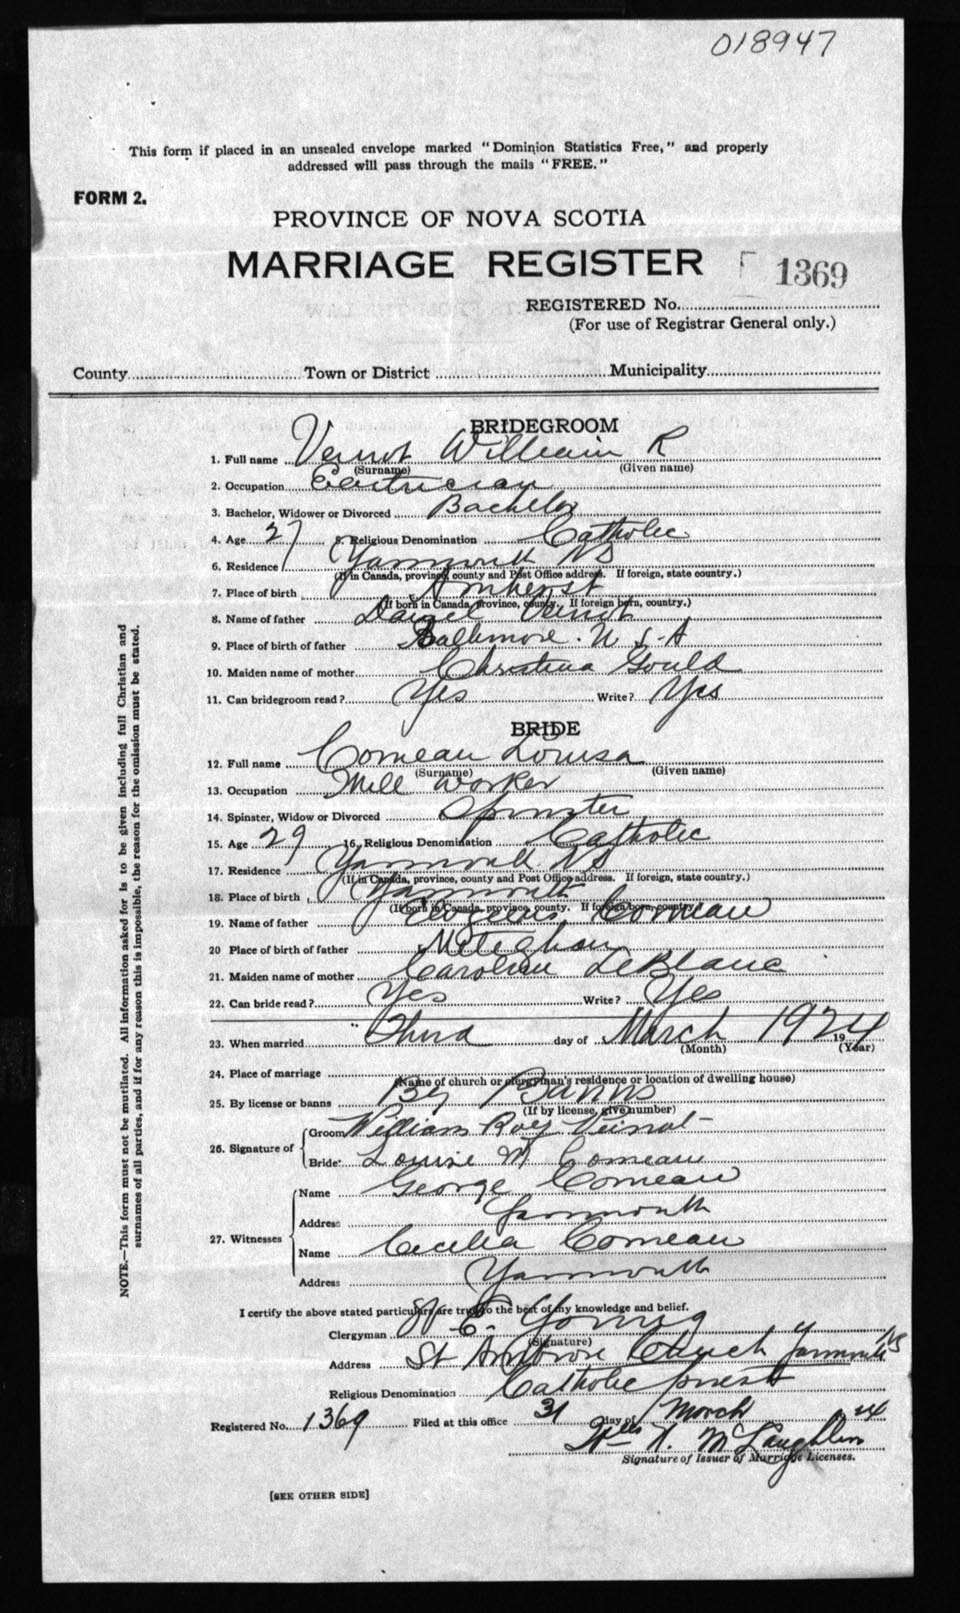 018947
This form if placed in an unsealed envelope marked "Dominion Statistics Free," and properly
addressed will pass through the mails "FREE."
FORM 2.
PROVINCE OF NOVA SCOTIA
MARRIAGE REGISTER
1369
REGISTERED No.
(For use of Registrar General only.)
County Town or District Municipality
BRIDEGROOM
1. Full name William R
(Surname) (Given name)
2. Occupation
3. Bachelor, Widower or Divorced Bachelor
4. Age 27 5. Religious Denomination Catholic
6. Residence Yarmouth NS
(If in Canada, province, county and Post Office address. If foreign, state country.)
7. Place of birth Amherst
(If born in Canada, province, county. If foreign born, country.)
8. Name of father Daniel
9. Place of birth of father Baltimore. U S A
10. Maiden name of mother Christina Gould
11. Can bridegroom read? Yes Write? Yes
BRIDE
12. Full name Comeau Louisa
(Surname) (Given name)
13. Occupation Mill Worker
14. Spinster, Widow or Divorced Spinster
15. Age 29 16. Religious Denomination Catholic
17. Residence Yarmouth NS
(If in Canada, province, county and Post Office address. If foreign, state country.)
18. Place of birth Yarmouth
(If born in Canada, province, county. If foreign born, country.)
19. Name of father Comeau
20 Place of birth of father Meteghan
21. Maiden name of mother Caroline LeBlanc
22. Can bride read? Yes Write? Yes
23. When married Third day of March 1924
(Month) 19 (Year)
24. Place of marriage
(Name of church or clergyman's residence or location of dwelling house)
25. By license or banns By Banns
(If by license, give number)
26. Signature of Groom William Roy Veinot
Bride Louise M Comeau
27. Witnesses Name George Comeau
Address Yarmouth
Name Cecilia Comeau
Address Yarmouth
I certify the above stated particulars are true to the best of my knowledge and belief.
Clergyman E. Young
(Signature)
Address St Ambrose Church Yarmouth NS
Religious Denomination Catholic priest
Registered No. 1369 Filed at this office 31 day of March 24
N. McLaughlin
Signature of Issuer of Marriage Licenses.
[SEE OTHER SIDE]
NOTE.—This form must not be mutilated. All information asked for is to be given including full Christian and
surnames of all parties, and if for any reason this is impossible, the reason for the omission must be stated.